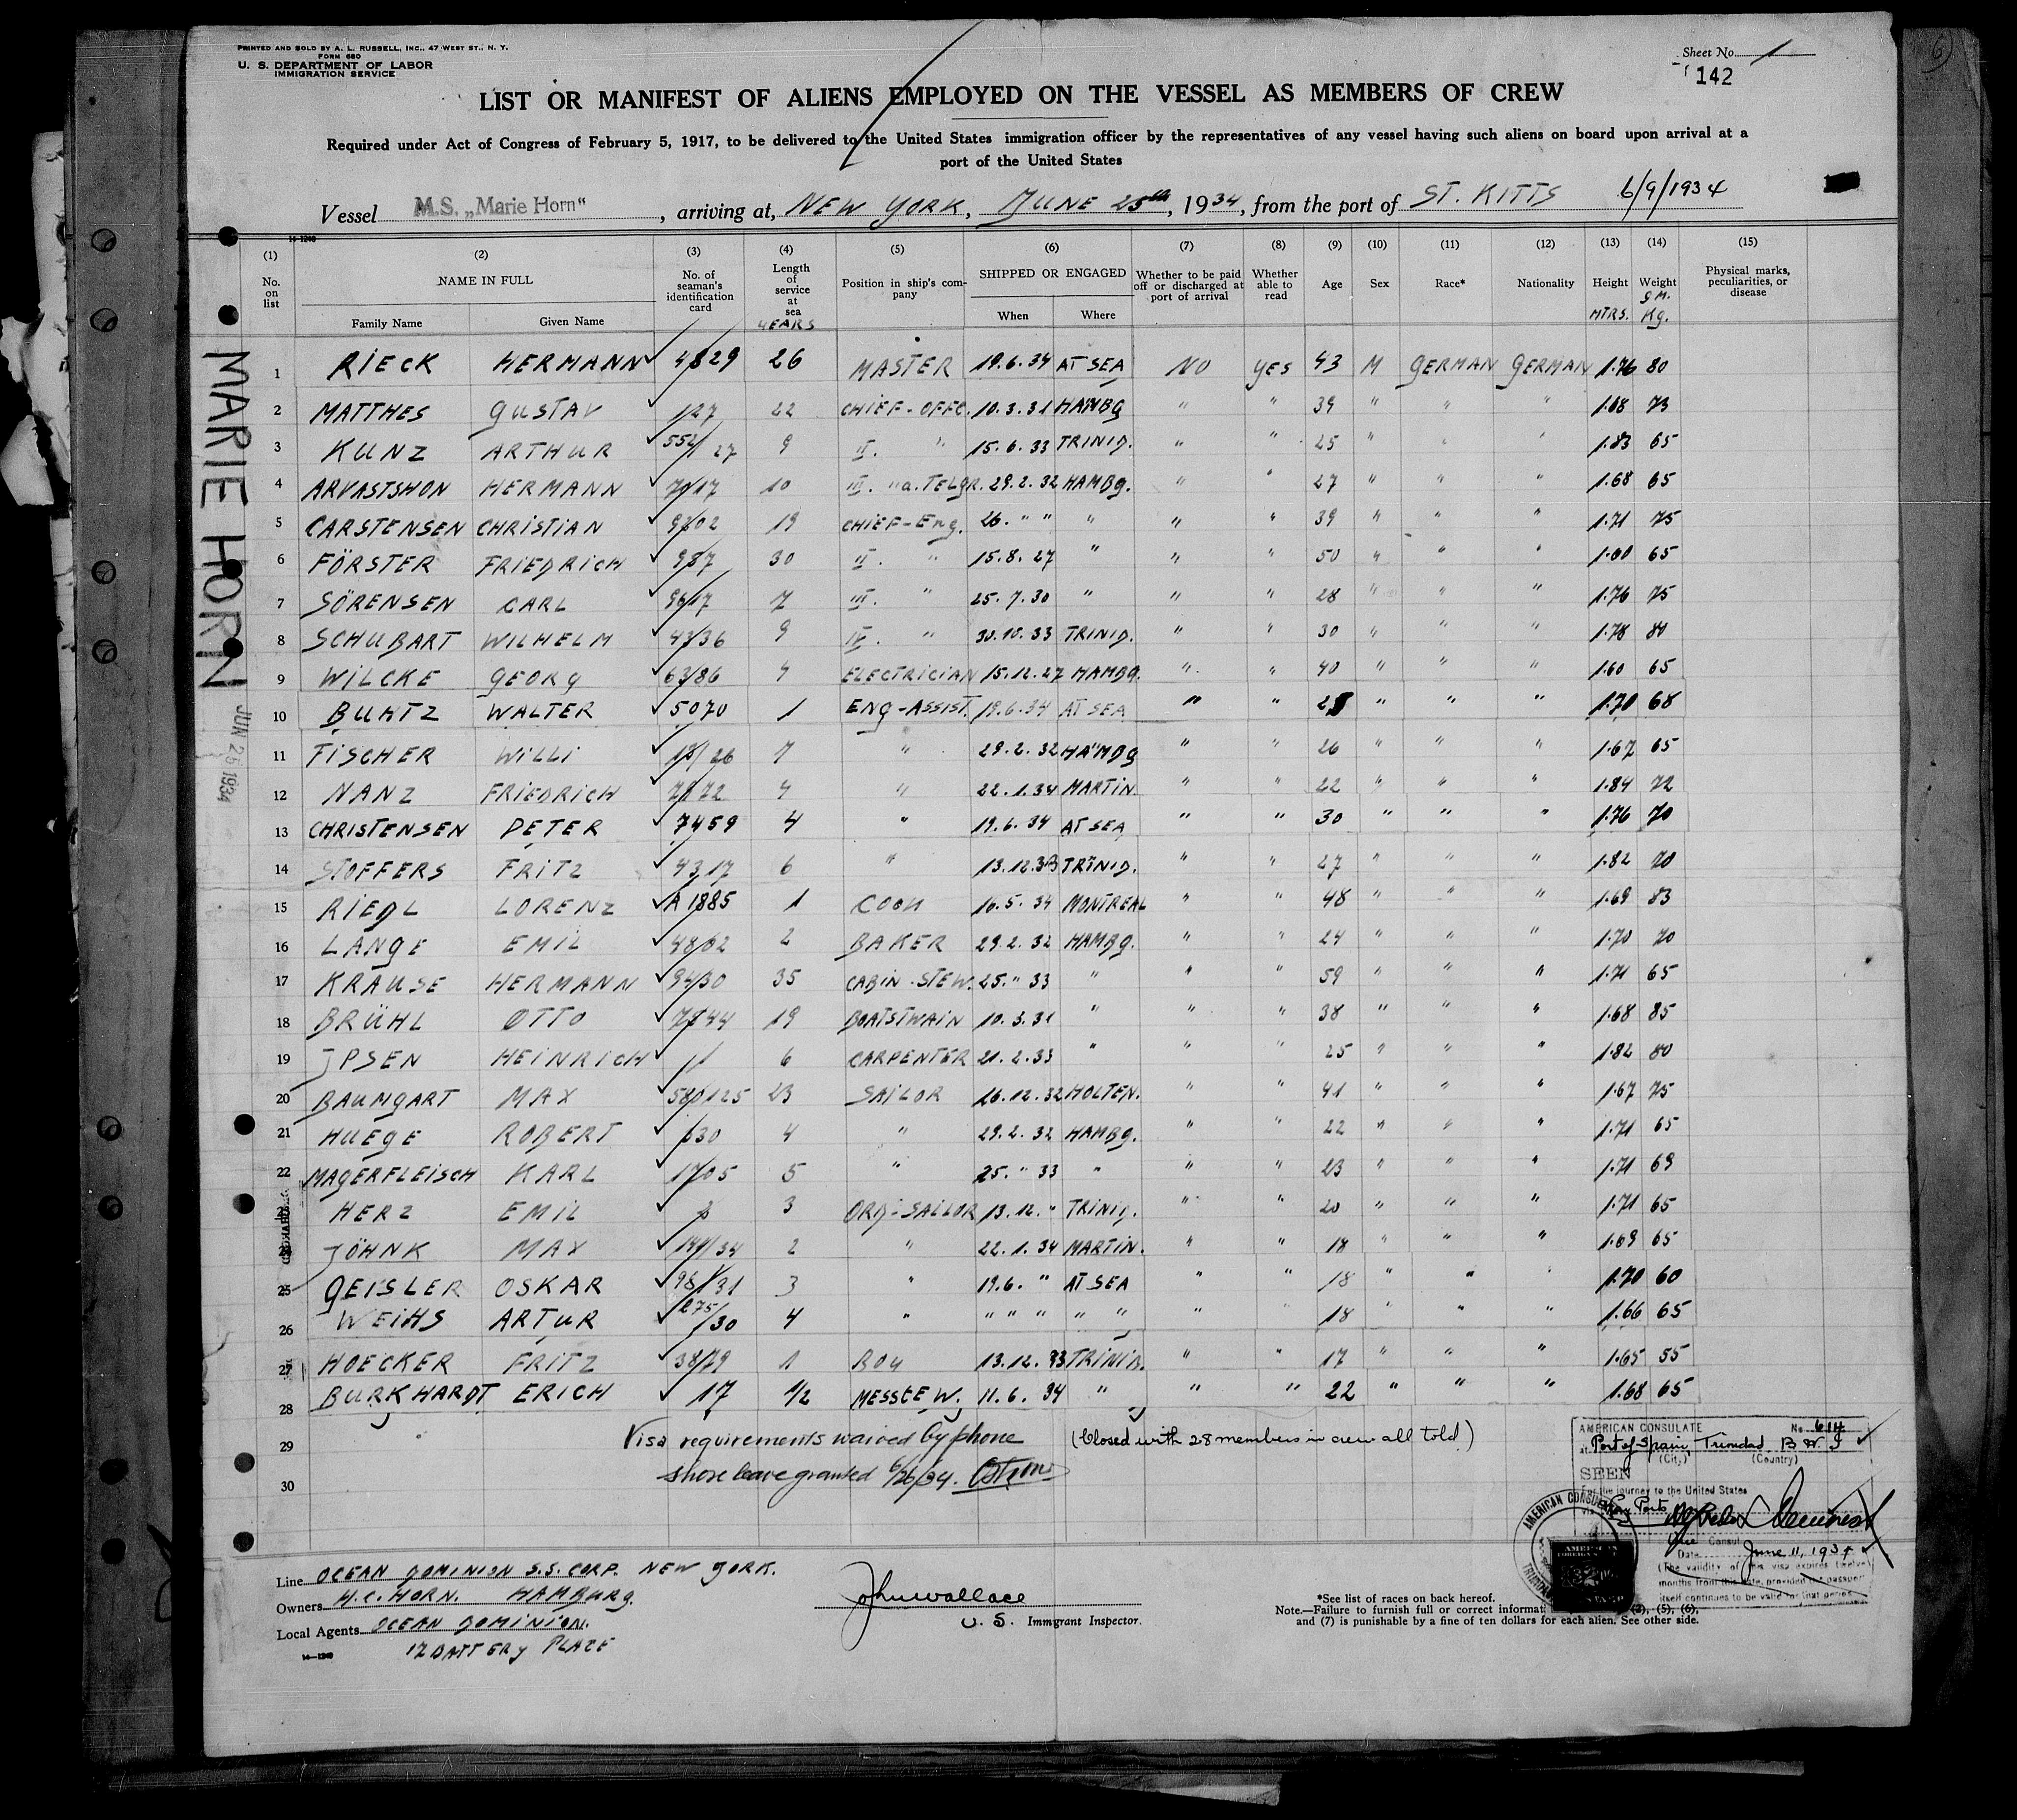 PRINTED AND SOLD BY A. L. RUSSELL, INC., 47 WEST ST., N. Y.
FORM 680
U. S. DEPARTMENT OF LABOR
IMMIGRATION SERVICE
Sheet No. 1
142
LIST OR MANIFEST OF ALIENS EMPLOYED ON THE VESSEL AS MEMBERS OF CREW
Required under Act of Congress of February 5, 1917, to be delivered to the United States immigration officer by the representatives of any vessel having such aliens on board upon arrival at a
port of the United States
Vessel M.S. „Marie Horn“, arriving at, NEW YORK, JUNE 25th, 1934, from the port of ST. KITTS 6/9/1934
(1) (2) (3) (4) (5) (6) (7) (8) (9) (10) (11) (12) (13) (14) (15)
No. on list NAME IN FULL Family Name Given Name No. of seaman's identification card Length of service at sea YEARS Position in ship's company SHIPPED OR ENGAGED When Where Whether to be paid off or discharged at port of arrival Whether able to read Age Sex Race* Nationality Height MTRS. Weight Kg. Physical marks, peculiarities, or disease
MARIE HORN
JUN 25 1934
1 RIECK HERMANN 4829 26 MASTER 19.6.34 AT SEA NO YES 43 M GERMAN GERMAN 1.76 80
2 MATTHES GUSTAV 127 22 CHIEF-OFFC. 10.3.31 HAMBG " " 39 " " " 1.68 73
3 KUNZ ARTHUR 552/27 9 II. " 15.6.33 TRINID. " " 25 " " " 1.83 65
4 ARVASTSHON HERMANN 10 III. " a. TELGR. 29.2.32 HAMBG. " " 27 " " " 1.68 65
5 CARSTENSEN CHRISTIAN 19 CHIEF-Eng. 26. " " " " " 39 " " " 1.71 75
6 FÖRSTER FRIEDRICH 30 II. " 15.8.27 " " " 50 " " " 1.60 65
7 SÖRENSEN CARL 7 III. " 25.7.30 " " " 28 " " " 1.76 75
8 SCHUBART WILHELM 43/36 9 IV. " 30.10.33 TRINID. " " 30 " " " 1.78 80
9 WILCKE GEORG 63/86 7 ELECTRICIAN 15.12.27 HAMBG. " " 40 " " " 1.60 65
10 BUHTZ WALTER 5070 1 ENG-ASSIST. 19.6.34 AT SEA " " " " " 1.70 68
11 FISCHER WILLI 7 " 29.2.32 HAMBG " " 26 " " " 1.67 65
12 NANZ FRIEDRICH 4 " 22.1.34 MARTIN. " " 22 " " " 1.84 72
13 CHRISTENSEN PETER 7459 4 " 19.6.34 AT SEA " " 30 " " " 1.76 70
14 STOFFERS FRITZ 4317 6 " 13.12.33 TRINID. " " 27 " " " 1.82 70
15 RIEDL LORENZ A 1885 1 COOK 16.5.34 MONTREAL " " 48 " " " 1.69 83
16 LANGE EMIL 48/02 2 BAKER 29.2.32 HAMBG. " " 24 " " " 1.70 70
17 KRAUSE HERMANN 94/30 35 CABIN-STEW. 25. " 33 " " " 59 " " " 1.71 65
18 BRÜHL OTTO 19 BOATSTWAIN 10.3.31 " " " 38 " " " 1.68 85
19 JPSEN HEINRICH 6 CARPENTER 21.2.33 " " " 25 " " " 1.82 80
20 BAUMGART MAX 23 SAILOR 16.12.32 HOLTEN. " " 41 " " " 1.67 75
21 HUEGE ROBERT 4 " 29.2.32 HAMBG. " " 22 " " " 1.71 65
22 MAGERFLEISCH KARL 17/05 5 " 25. " 33 " " " 23 " " " 1.71 69
23 HERZ EMIL 3 ORD-SAILOR 13.12. " TRINID. " " 20 " " " 1.71 65
24 JÖHNK MAX 2 " 22.1.34 MARTIN. " " 18 " " " 1.69 65
25 GEISLER OSKAR 98/31 3 " 19.6. " AT SEA " " 18 " " " 1.70 60
26 WEIHS ARTUR 275/30 4 " " " " " " " " 18 " " " 1.66 65
27 HOECKER FRITZ 38/79 1 BOY 13.12.33 TRINID. " " 17 " " " 1.65 55
28 BURKHARDT ERICH 17 1/2 MESSTEW. 11.6.34 " " " 22 " " " 1.68 65
29 Visa requirements waived by phone (Closed with 28 members in crew all told)
30 Shore leave granted 6/26/34.
AMERICAN CONSULATE No. 614
at Port of Spain, Trinidad, B.W.I
(City) (Country)
SEEN
For the journey to the United States
Vice Consul
Date June 11, 1934
(The validity of this visa expires twelve
months from this date, provided the passport
itself continues to be valid for that period.)
AMERICAN CONSULATE
Line OCEAN DOMINION S.S. CORP. NEW YORK.
Owners H.C. HORN. HAMBURG.
Local Agents OCEAN DOMINION.
17 BATTERY PLACE
14—1240
John Wallace
U. S. Immigrant Inspector.
*See list of races on back hereof.
Note.—Failure to furnish full or correct informat (5), (6),
and (7) is punishable by a fine of ten dollars for each alien. See other side.